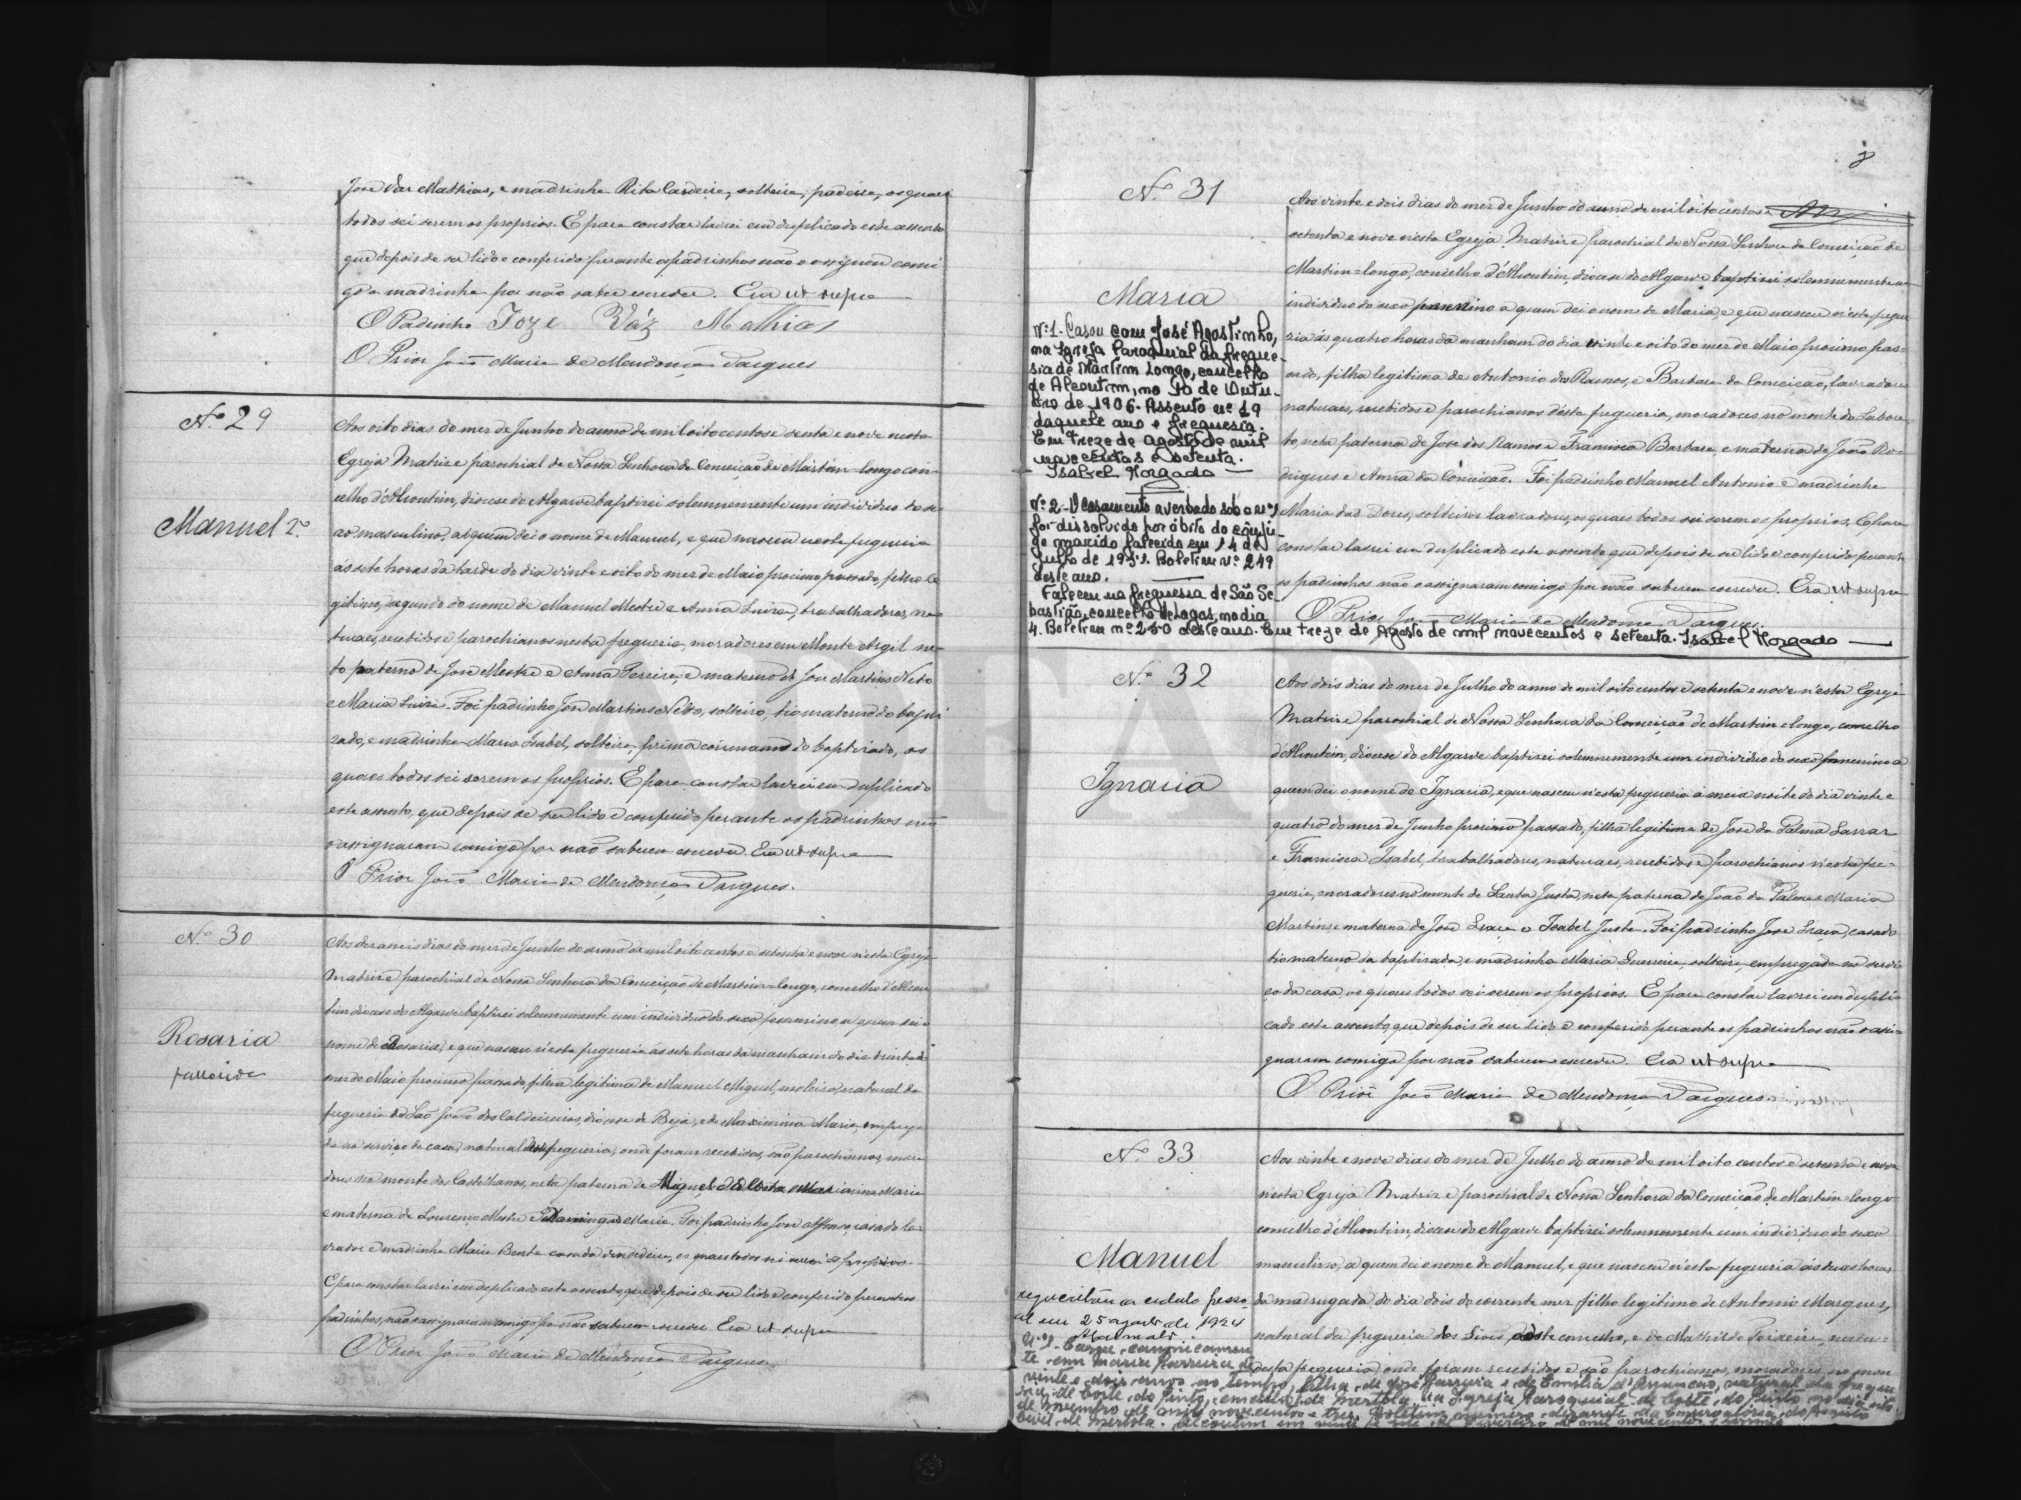 José Vaz Mathias, e madrinha Rita Cardeira, solteira, padeira, os quaes
todos sei serem os proprios. E para constar lavrei em duplicado este assento
que depois de ser lido e conferido perante os padrinhos não o assignou comi
go a madrinha por não saber escrever. Era ut supra
O Padrinho Joze Váz Mathias
O Prior João Maria de Mendonça Pargues
Nº 29
Manuel 2º
Aos oito dias do mez de Junho do anno de mil oito centos e setenta e nove nesta
Egreja Matriz e parochial de Nossa Senhora da Conceição de Martim-longo con
celho d'Alcoutim, diocese do Algarve baptizei solemnemente um individuo do se
xo masculino, a quem dei o nome de Manuel, e que nasceu nesta freguezia
as sete horas da tarde do dia vinte e oito do mez de Maio proximo passado, filho le
gitimo, segundo do nome de Manuel Mestre e Anna Luiza, trabalhadores, na
turaes, recebidos e parochianos nesta freguezia, moradores em Monte Argil ne
to paterno de José Mestre e Anna Pereira, e materno de José Martins Neto
e Maria Luiza. Foi padrinho José Martins Netto, solteiro, tio materno do bapti
zado, e madrinha Maria Izabel, solteira, prima coirmam do baptizado, os
quaes todos sei serem os proprios. E para constar lavrei em duplicado
este assento, que depois de ser lido e conferido perante os padrinhos não
o assignaram comigo por não saberem escrever. Era ut supra
O Prior João Maria de Mendonça Pargues.
Nº 30
Rosaria
falleceu
Aos dezaseis dias do mez de Junho do anno de mil oito centos e setenta e nove n'esta Egreja
Matriz e parochial de Nossa Senhora da Conceição de Martim-longo, concelho d'Alcou
tim diocese do Algarve baptizei solemnemente um individuo do sexo femenino a quem dei o
nome de Rosaria, e que nasceu n'esta freguezia ás sete horas da manham do dia trinta do
mez de Maio proximo passado filha legitima de Manuel Miguel, moleiro, natural da
freguezia de São João dos Caldeireiros, diocese de Beja, e de Maximina Maria, emprega
da no serviço de casa, natural desta freguezia, onde foram recebidos, são parochianos, mora
dores no monte dos Castelhanos, neta paterna de Miguel da Costa e Marianna Maria
e materna de Lourenço Mestre e Domingas Maria. Foi padrinho José Affonso, casado la
vrador e madrinha Maria Benta casada vendedeira, os quaes todos sei serem os proprios
E para constar lavrei em duplicado este assento que depois de ser lido e conferido perante os
padrinhos, não o assignaram comigo por não saberem escrever Era ut supra
O Prior João Maria de Mendonça Pargues
8
Nº 31
Maria
Nº 1. Casou com José Agostinho,
na Igreja Paroquial da fregue-
sia de Martim Longo, concelho
de Alcoutim, no 10 de Outu-
bro de 1906. Assento nº 19
daquele ano e freguesia.
Em treze de agosto de mil
novecentos e setenta.
Isabel Horgado
Nº 2. O casamento averbado sob o nº 1
foi dissolvido por óbito do cônju-
ge marido falecido em 14 de
Julho de 1951. Boletim nº 249
deste ano.
Faleceu na freguesia de São Se-
bastião, concelho de Lagos, no dia
4. Boletim nº 250 deste ano. Em treze de Agosto de mil novecentos e setenta. Isabel Horgado
Aos vinte e dois dias do mez de Junho do anno de mil oito centos e
setenta e nove nesta Egreja Matriz e parochial de Nossa Senhora da Conceição de
Martim-longo, concelho d'Alcoutim, diocese do Algarve baptizei solemnemente um
individuo do sexo femenino a quem dei o nome de Maria, e que nasceu n'esta fregue
zia ás quatro horas da manham do dia vinte e oito do mez de Maio proximo pas-
sado, filha legitima de Antonio dos Ramos, e Barbara da Conceição, lavradores
naturaes, recebidos e parochianos désta freguezia, moradores no monte do
to, neta paterna de José dos Ramos e Francisca Barbara, e materna de João Ro-
drigues e Anna da Conceição. Foi padrinho Manuel Antonio e madrinha
Maria das Dores, solteiros lavradores, os quaes todos sei serem os proprios, E para
constar lavrei em duplicado este assento que depois de ser lido e conferido perante
os padrinhos não o assignaram comigo por não saberem escrever. Era ut supra
O Prior João Maria de Mendonça Pargues.
Nº 32
Ignacia
Aos dois dias do mez de Julho do anno de mil oito centos e setenta e nove n'esta Egreja
Matriz e parochial de Nossa Senhora da Conceição de Martim-longo, concelho
d'Alcoutim, diocese do Algarve baptizei solemnemente um individuo do sexo femenino a
quem dei o nome de Ignacia, e que nasceu n'esta freguezia á meia noite do dia vinte e
quatro do mez de Junho proximo passado, filha legitima de José da Palma
e Francisca Isabel, trabalhadores, naturaes, recebidos e parochianos n'esta fre-
guezia, moradores no monte de Santa Justa, neta paterna de João da Palma e Maria
Martins, e materna de José e Isabel Justa. Foi padrinho José casado
tio materno da baptizada, e madrinha Maria Guerreira, solteira, empregada no servi
ço da casa, os quaes todos sei serem os proprios. E para constar lavrei em dupli
cado este assento, que depois de ser lido e conferido perante os padrinhos não o assi-
gnaram comigo por não saberem escrever. Era ut supra
O Prior João Maria de Mendonça Pargues
Nº 33
Manuel
requeritou a cedula pesso
al em 25 agosto de 1924
Nº 1- Casou canonicamen
te com Maria Parreira de
Aos vinte e nove dias do mez de Julho do anno de mil oito centos e setenta e nove
nesta Egreja Matriz e parochial de Nossa Senhora da Conceição de Martim-longo
concelho d'Alcoutim, diocese do Algarve baptizei solemnemente um individuo do sexo
masculino, a quem dei o nome de Manuel, e que nasceu n'esta freguezia ás duas horas
da madrugada do dia dois do corrente mez filho legitimo de Antonio Marques,
natural da freguezia dos Giões deste concelho, e de Mathilde Teixeira, natu-
desta freguezia, onde foram recebidos e são parochianos, moradores no mon
vinte e dois annos ao tempo, filha de José Parreira e de Emilia d'Anunciao, natural da fregue
sia de Corte do Pinto, concelho de Mertola, na Igreja Paroquial de Corte do Pinto no dia oito
de novembro de mil novecentos e tres. Boletim numero dezanove da Conservatória do Registo
Civil de Mertola. Alcoutim em vinte e